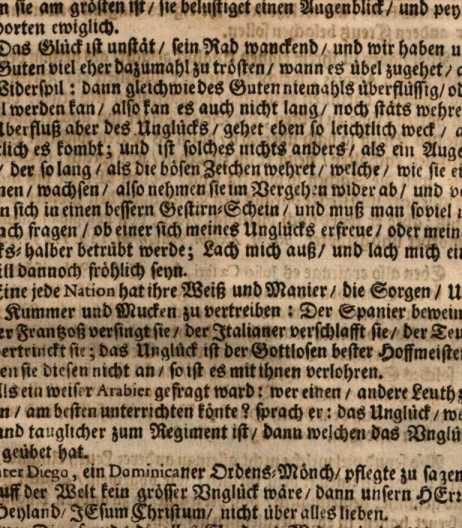 n sie am grösten ist / sie belustiget einen Augenblick / und pey
dorten ewiglich.
Das Glück ist unstät / sein Rad wanckend / und wir haben u
Guten viel eher dazumahl zu trösten / wann es übel zugehet / a
Widerspil : dann gleichwie des Guten niemahls überflüssig / od
l werden kan / also kan es auch nicht lang / noch stäts wehre
Uberfluß aber des Unglücks / gehet eben so leichtlich weck / a
tlich es kombt; und ist solches nichts anders / als ein Auge
/ der so lang / als die bösen Zeichen wehret / welche / wie sie ei
nen / wachsen / also nehmen sie im Vergehen wider ab / und ve
en sich in einen bessern Gestirn-Schein / und muß man soviel n
ach fragen / ob einer sich meines Unglücks erfreue / oder mein
ks-halber betrübt werde; Lach mich auß / und lach mich ein
ill dannoch fröhlich seyn.
Eine jede Nation hat ihre Weiß und Manier / die Sorgen / U
Kummer und Mucken zu vertreiben : Der Spanier bewein
er Frantzoß versingt sie / der Italianer verschlafft sie / der Teu
vertrinckt sie; das Unglück ist der Gottlosen bester Hoffmeister
en sie diesen nicht an / so ist es mit ihnen verlohren.
Als ein weiser Arabier gefragt ward : wer einen / andere Leuth z
n / am besten unterrichten könte? sprach er : das Unglück / we
und tauglicher zum Regiment ist / dann welchen das Unglü
geübet hat.
ater Diego, ein Dominicaner Ordens-Mönch / pflegte zu sagen
auff der Welt kein grösser Unglück wäre / dann unsern HErr
Heyland / JEsum Christum / nicht über alles lieben.